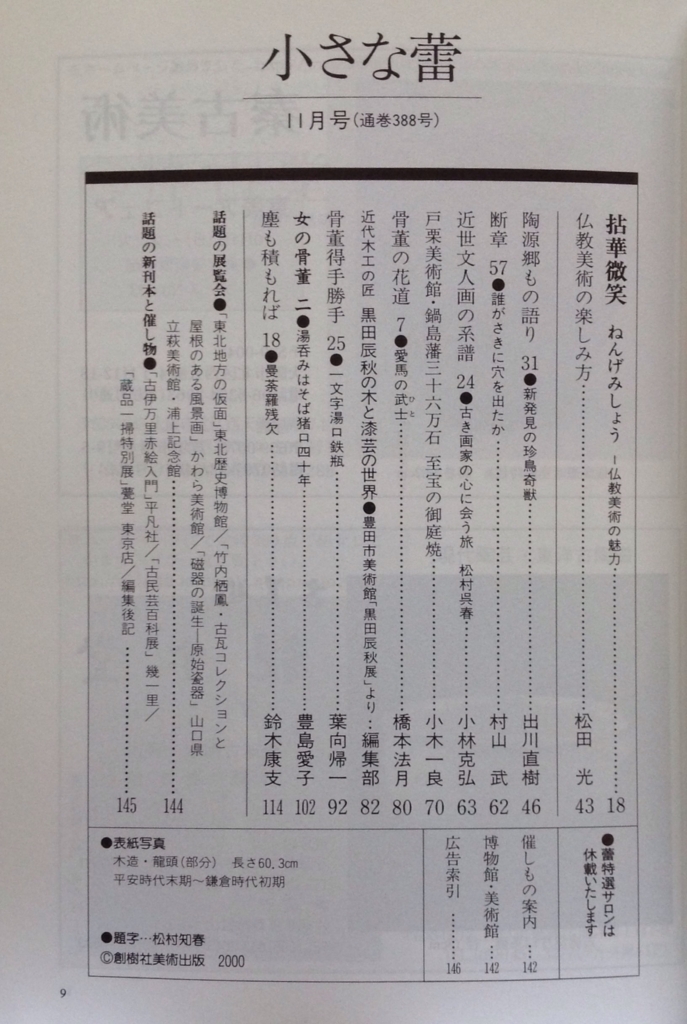 小さな蕾
11月号(通巻388号)
拈華微笑　ねんげみしょう　ー仏教美術の魅力……………18
仏教美術の楽しみ方……………松田　光 43
陶源郷もの語り 31●新発見の珍鳥奇獣……………出川直樹 46
断章 57●誰がさきに穴を出たか……………村山　武 62
近世文人画の系譜 24●古き画家の心に会う旅　松村呉春……………小林克弘 63
戸栗美術館・鍋島藩三十六万石 至宝の御庭焼……………小木一良 70
骨董の花道 7●愛馬の武士ひと……………橋本法月 80
近代木工の匠 黒田辰秋の木と漆芸の世界●豊田市美術館「黒田辰秋展」より…編集部 82
骨董得手勝手 25●一文字湯口鉄瓶……………葉向帰一 92
女の骨董 二●湯呑みはそば猪口四十年……………豊島愛子 102
塵も積もれば 18●曼荼羅残欠……………鈴木康支 114
話題の展覧会●「東北地方の仮面」東北歴史博物館／「竹内栖鳳・古瓦コレクションと
屋根のある風景画」かわら美術館／「磁器の誕生―原始瓷器」山口県
立萩美術館・浦上記念館……………144
話題の新刊本と催し物●「古伊万里赤絵入門」平凡社／「古民芸百科展」幾一里／
「蔵品一掃特別展」甍堂 東京店／編集後記……………145
●蕾特選サロンは
休載いたします
催しもの案内…142
博物館・美術館…142
広告索引………146
●表紙写真
木造・龍頭(部分)　長さ60.3cm
平安時代末期〜鎌倉時代初期
●題字…松村知春
©創樹社美術出版　2000
9